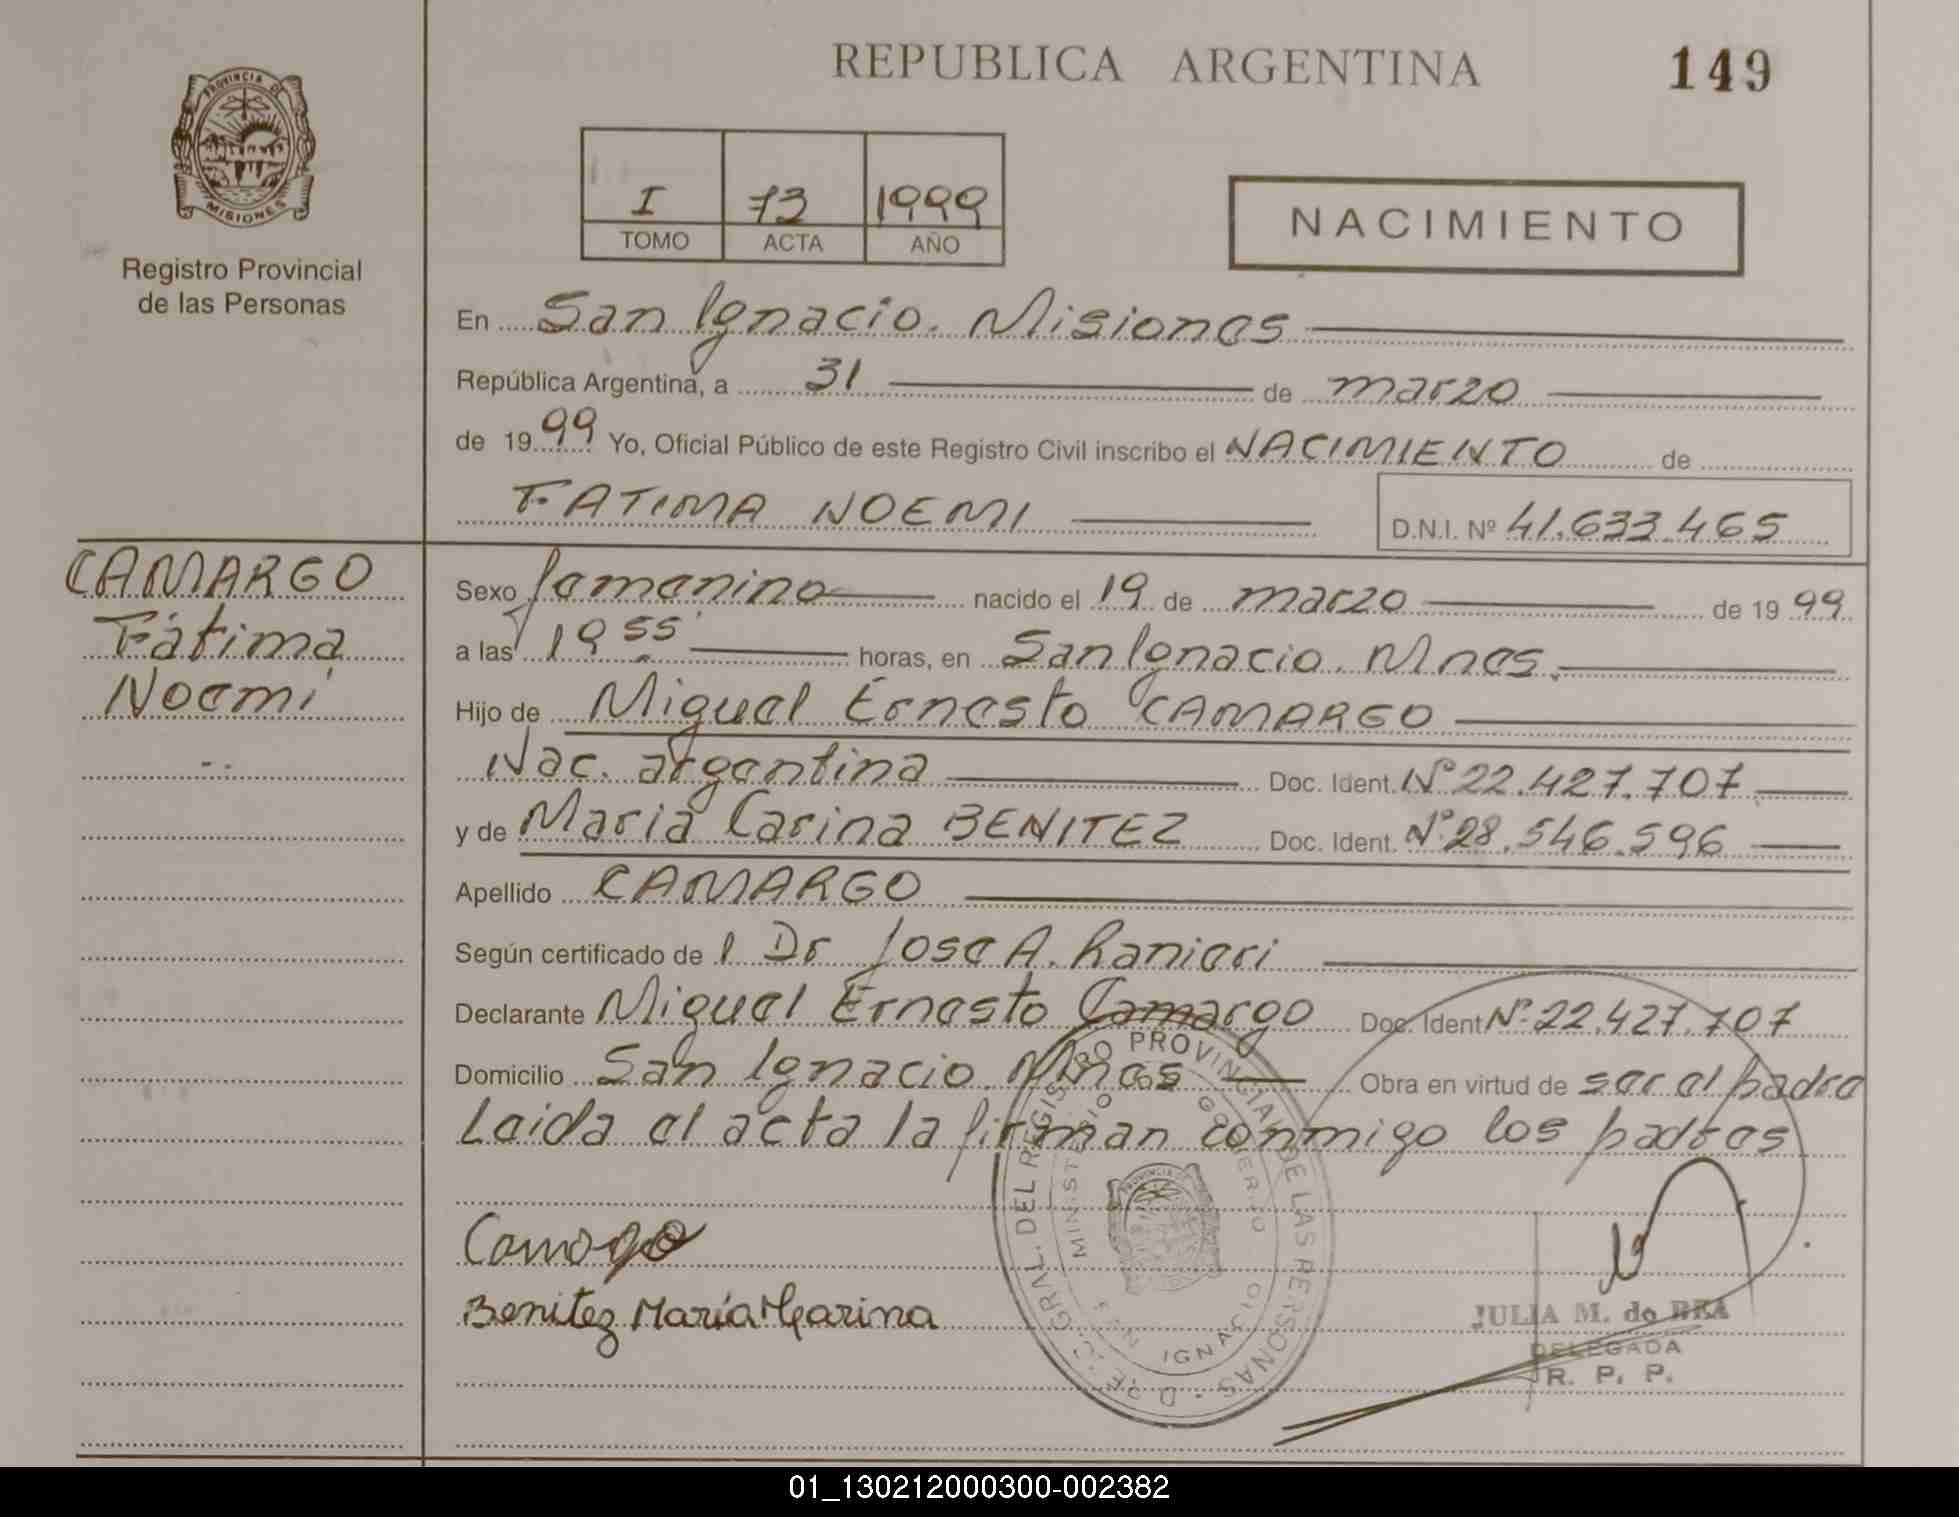 REPUBLICA ARGENTINA
149
PROVINCIA DE
MISIONES
Registro Provincial
de las Personas
I 73 1999
TOMO ACTA AÑO
NACIMIENTO
En San Ignacio. Misiones
República Argentina, a 31 de marzo
de 1999 Yo, Oficial Público de este Registro Civil inscribo el NACIMIENTO de
FATIMA NOEMI D.N.I. Nº 41.633.465
CAMARGO
Fátima
Noemí
Sexo femenino nacido el 19 de marzo de 1999
a las 19 55 horas, en San Ignacio. Mnes.
Hijo de Miguel Ernesto CAMARGO
Nac. argentina Doc. Ident. Nº 22.427.707
y de María Carina BENITEZ Doc. Ident. Nº 28.546.596
Apellido CAMARGO
Según certificado de l Dr Jose A. Ranieri
Declarante Miguel Ernesto Camargo Doc. Ident Nº 22.427.707
Domicilio San Ignacio. Mnes Obra en virtud de ser el padre
Leida el acta la firman conmigo los padres
GRAL. DEL REGISTRO PROVINCIAL DE LAS PERSONAS
MINISTERIO GOBIERNO
IGNACIO
Benitez María Carina
JULIA M. de BEA
DELEGADA
R. P. P.
01_130212000300-002382